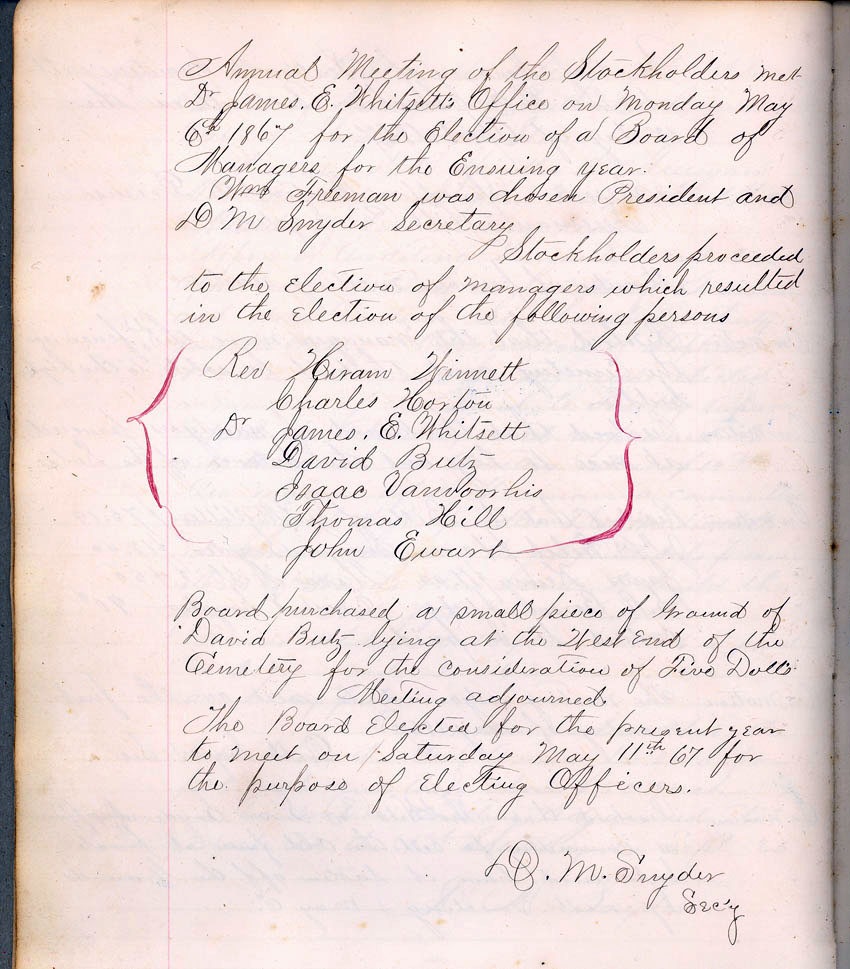 Annual Meeting of the Stockholders met
Dr James. E. Whitsett's Office on Monday May
6th 1867 for the Election of a Board of
Managers for the Ensuing year.
Wm Freeman was chosen President and
D M Snyder Secretary
Stockholders proceeded
to the election of managers which resulted
in the election of the following persons
Rev Hiram Winnett
Charles Horton
Dr James. E. Whitsett
David Butz
Isaac Vanvoorhis
Thomas Hill
John Ewart
Board purchased a small piece of Ground of
David Butz lying at the West End of the
Cemetery for the consideration of Five Dolls
Meeting adjourned
The Board Elected for the present year
to meet on Saturday May 11th 67 for
the purpose of Electing Officers.
D. M. Snyder
Sec'y